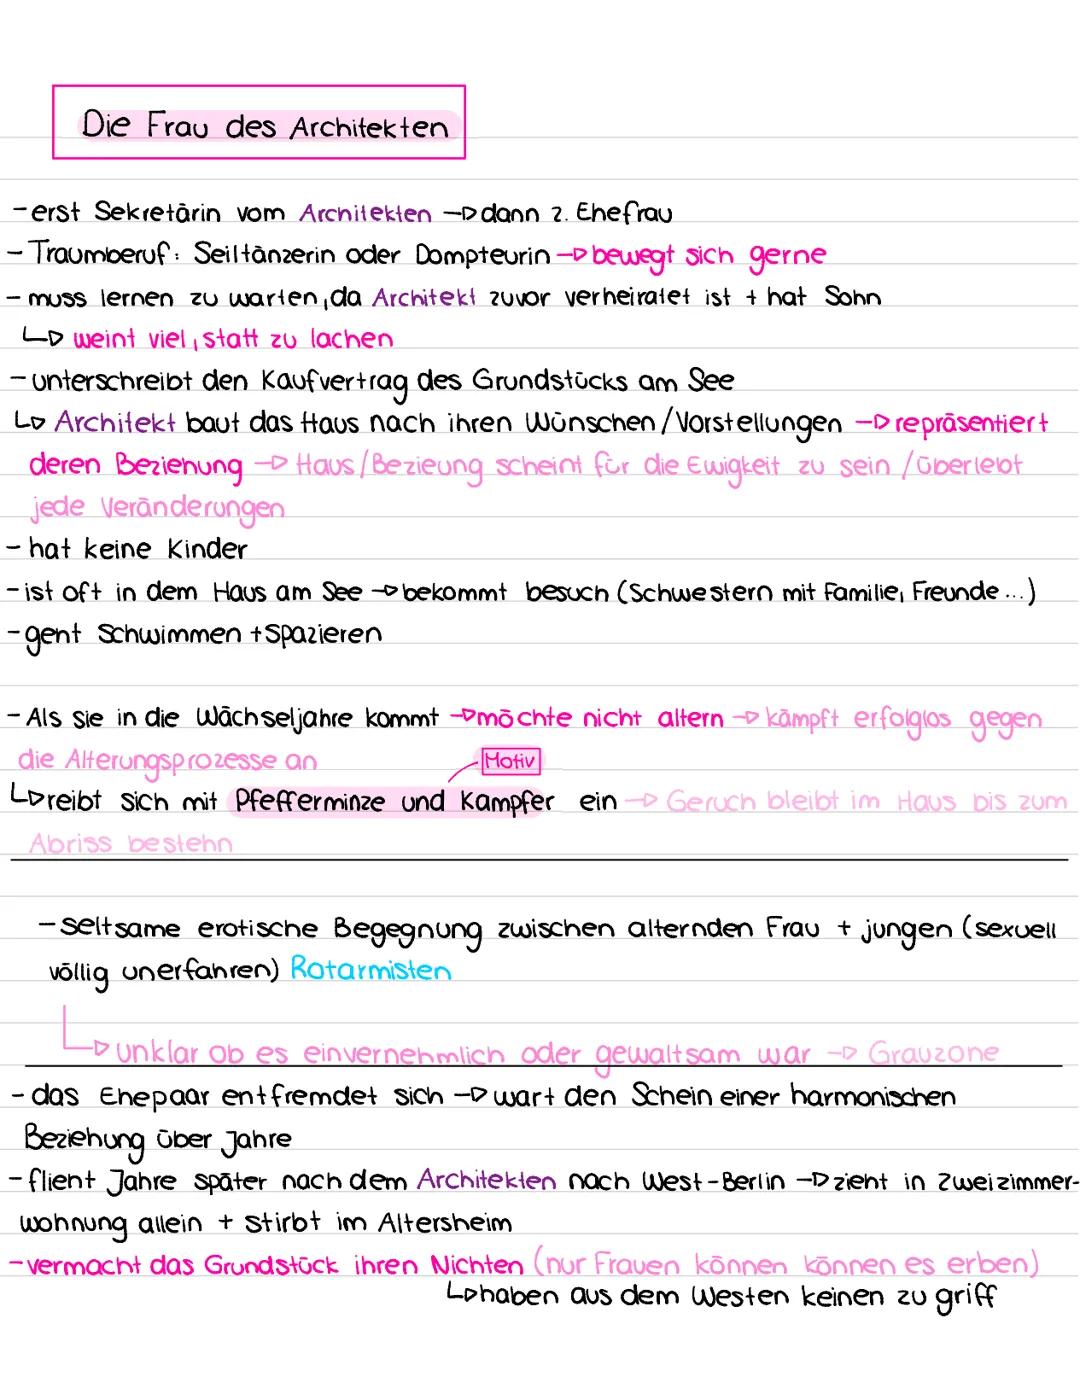 Die Frau des Architekten
- erst Sekretärin vom Architekten → dann 2. Ehefrau
- Traumberuf: Seiltänzerin oder Dompteurin → bewegt sich gerne
- muss lernen zu warten, da Architekt zuvor verheiratet ist + hat Sohn
↳ weint viel, statt zu lachen
- unterschreibt den Kaufvertrag des Grundstücks am See
↳ Architekt baut das Haus nach ihren Wünschen/Vorstellungen → repräsentiert
deren Beziehung → Haus/Bezieung scheint für die Ewigkeit zu sein /überlebt
jede Veränderungen
- hat keine Kinder
- ist oft in dem Haus am See → bekommt besuch (Schwestern mit Familie, Freunde ...)
- geht Schwimmen + Spazieren
- Als sie in die Wächseljahre kommt → möchte nicht altern → kämpft erfolglos gegen
die Alterungsprozesse an
Motiv
↳ reibt sich mit Pfefferminze und Kampfer ein → Geruch bleibt im Haus bis zum
Abriss bestehn
- seltsame erotische Begegnung zwischen alternden Frau + jungen (sexuell
völlig unerfahren) Rotarmisten
↳ unklar ob es einvernehmlich oder gewaltsam war → Grauzone
- das Ehepaar entfremdet sich → wart den Schein einer harmonischen
Beziehung über Jahre
- flieht Jahre später nach dem Architekten nach West-Berlin → zieht in Zweizimmer-
wohnung allein + stirbt im Altersheim
- vermacht das Grundstück ihren Nichten (nur Frauen können können es erben)
↳ haben aus dem Westen keinen zu griff